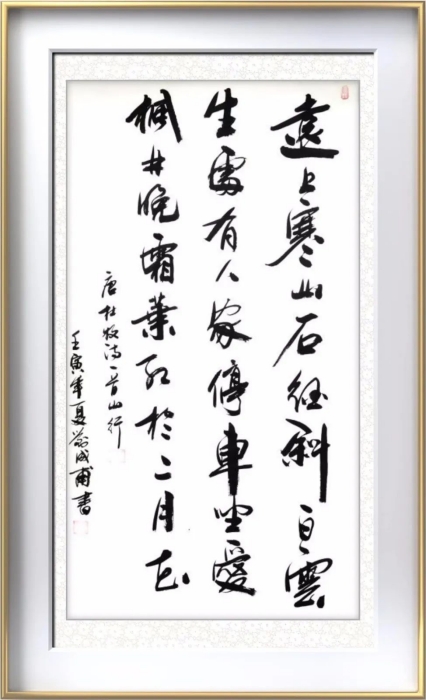 遠上寒山石径斜白雲
生處有人家停車坐愛
楓林晚霜葉红於二月花
唐杜牧诗一首山行
壬寅年夏成甫書